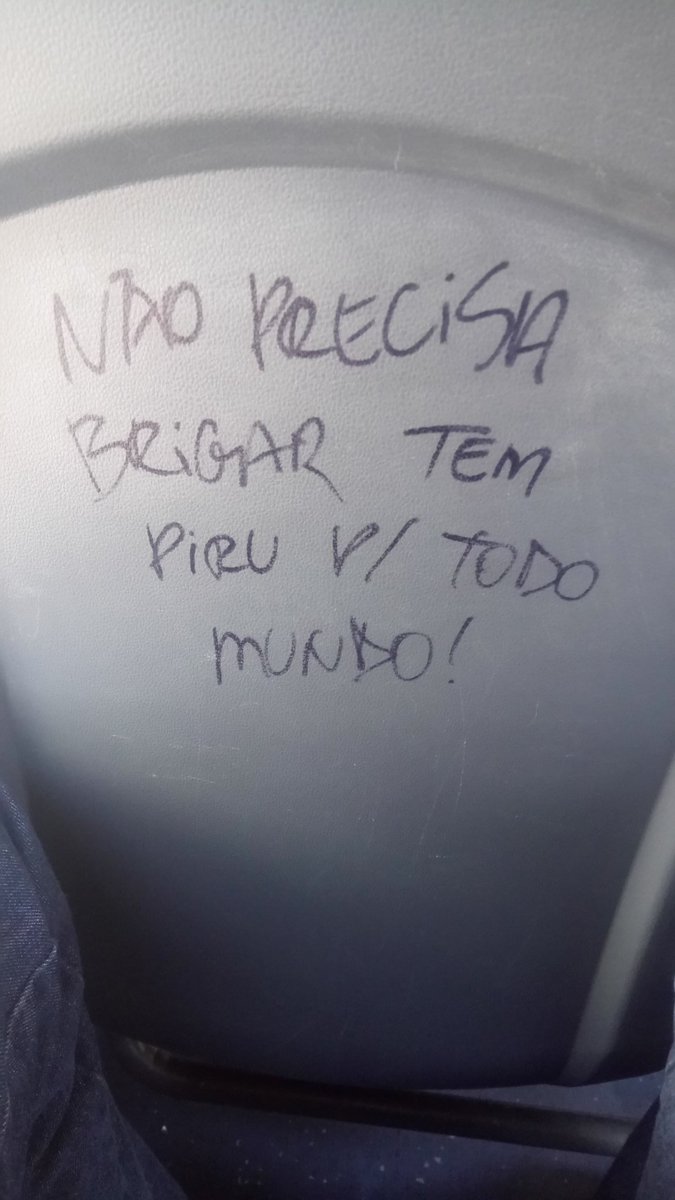 NÃO PRECISA
BRIGAR TEM
PIRU P/ TODO
MUNDO!